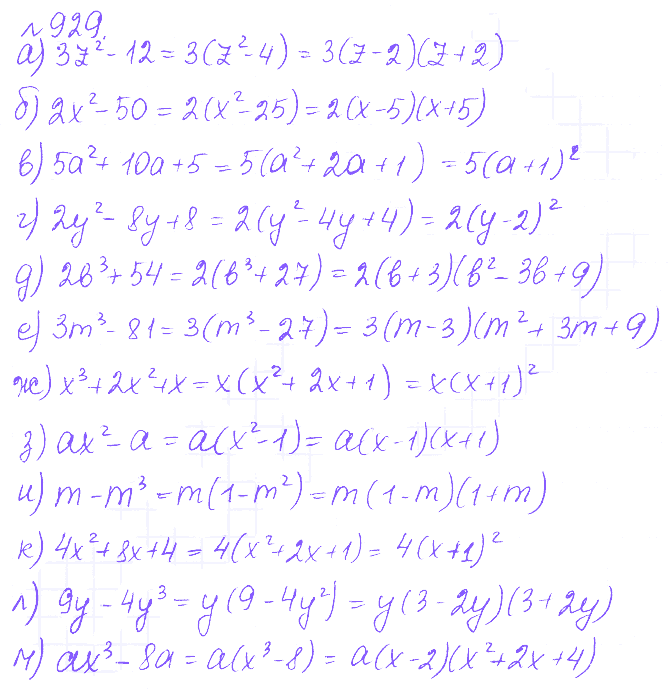 №929.
а) 3z² - 12 = 3(z² - 4) = 3(z - 2)(z + 2)
б) 2x² - 50 = 2(x² - 25) = 2(x - 5)(x + 5)
в) 5a² + 10a + 5 = 5(a² + 2a + 1) = 5(a + 1)²
г) 2y² - 8y + 8 = 2(y² - 4y + 4) = 2(y - 2)²
д) 2b³ + 54 = 2(b³ + 27) = 2(b + 3)(b² - 3b + 9)
е) 3m³ - 81 = 3(m³ - 27) = 3(m - 3)(m² + 3m + 9)
ж) x³ + 2x² + x = x(x² + 2x + 1) = x(x + 1)²
з) ax² - a = a(x² - 1) = a(x - 1)(x + 1)
и) m - m³ = m(1 - m²) = m(1 - m)(1 + m)
к) 4x² + 8x + 4 = 4(x² + 2x + 1) = 4(x + 1)²
л) 9y - 4y³ = y(9 - 4y²) = y(3 - 2y)(3 + 2y)
м) ax³ - 8a = a(x³ - 8) = a(x - 2)(x² + 2x + 4)